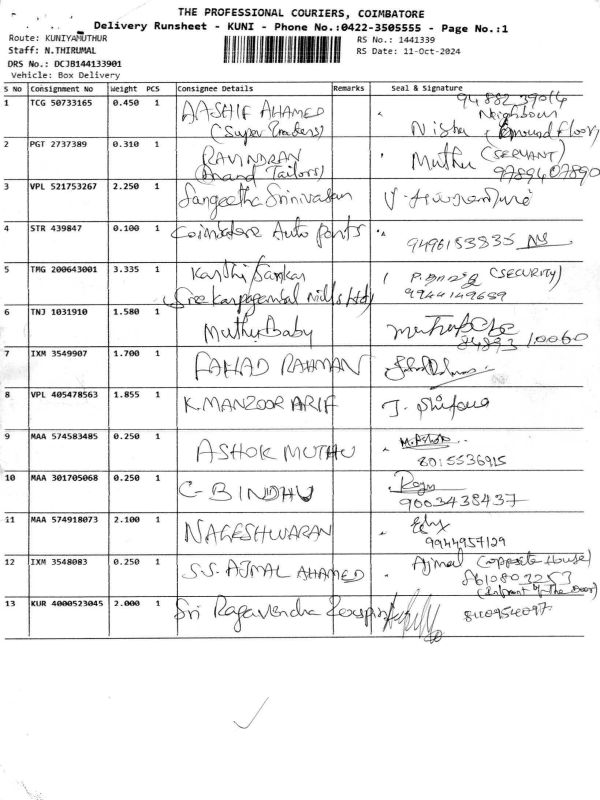 THE PROFESSIONAL COURIERS, COIMBATORE
Delivery Runsheet - KUNI - Phone No.:0422-3505555 - Page No.:1
Route: KUNIYAMUTHUR
RS No.: 1441339
Staff: N.THIRUMAL
RS Date: 11-Oct-2024
DRS No.: DCJB144133901
Vehicle: Box Delivery
S No Consignment No Weight PCS Consignee Details Remarks Seal & Signature
1 TCG 50733165 0.450 1 AASHIF AHAMED
(Super Traders)
Neighbour
Nisha (Ground Floor)
2 PGT 2737389 0.310 1 RAVINDRAN Muthu (SERVANT)
(Anand Tailors) 9789407890
3 VPL 521753267 2.250 1 Sangeetha Srinivasan
4 STR 439847 0.100 1 Coimbatore Auto parts
9496153835
5 TMG 200643001 3.335 1 Karthi Sankar (SECURITY)
(Sree Karpagambal mills ltd) 9944149659
6 TNJ 1031910 1.580 1 Muthu Baby
84893 10060
7 IXM 3549907 1.700 1 FAHAD RAHMAN
8 VPL 405478563 1.855 1 K.MANZOOR ARIF J. Shifana
9 MAA 574583485 0.250 1 ASHOK MUTHU M.Ashok
8015536915
10 MAA 301705068 0.250 1 C-BINDHU
9003438437
11 MAA 574918073 2.100 1 NAGESHWARAN
9944957129
12 IXM 3548083 0.250 1 S.S. AJMAL AHAMED Ajmal (opposite House)
8610803253
(Infront of The Door)
13 KUR 4000523045 2.000 1 Sri Ragavendra
8409954097